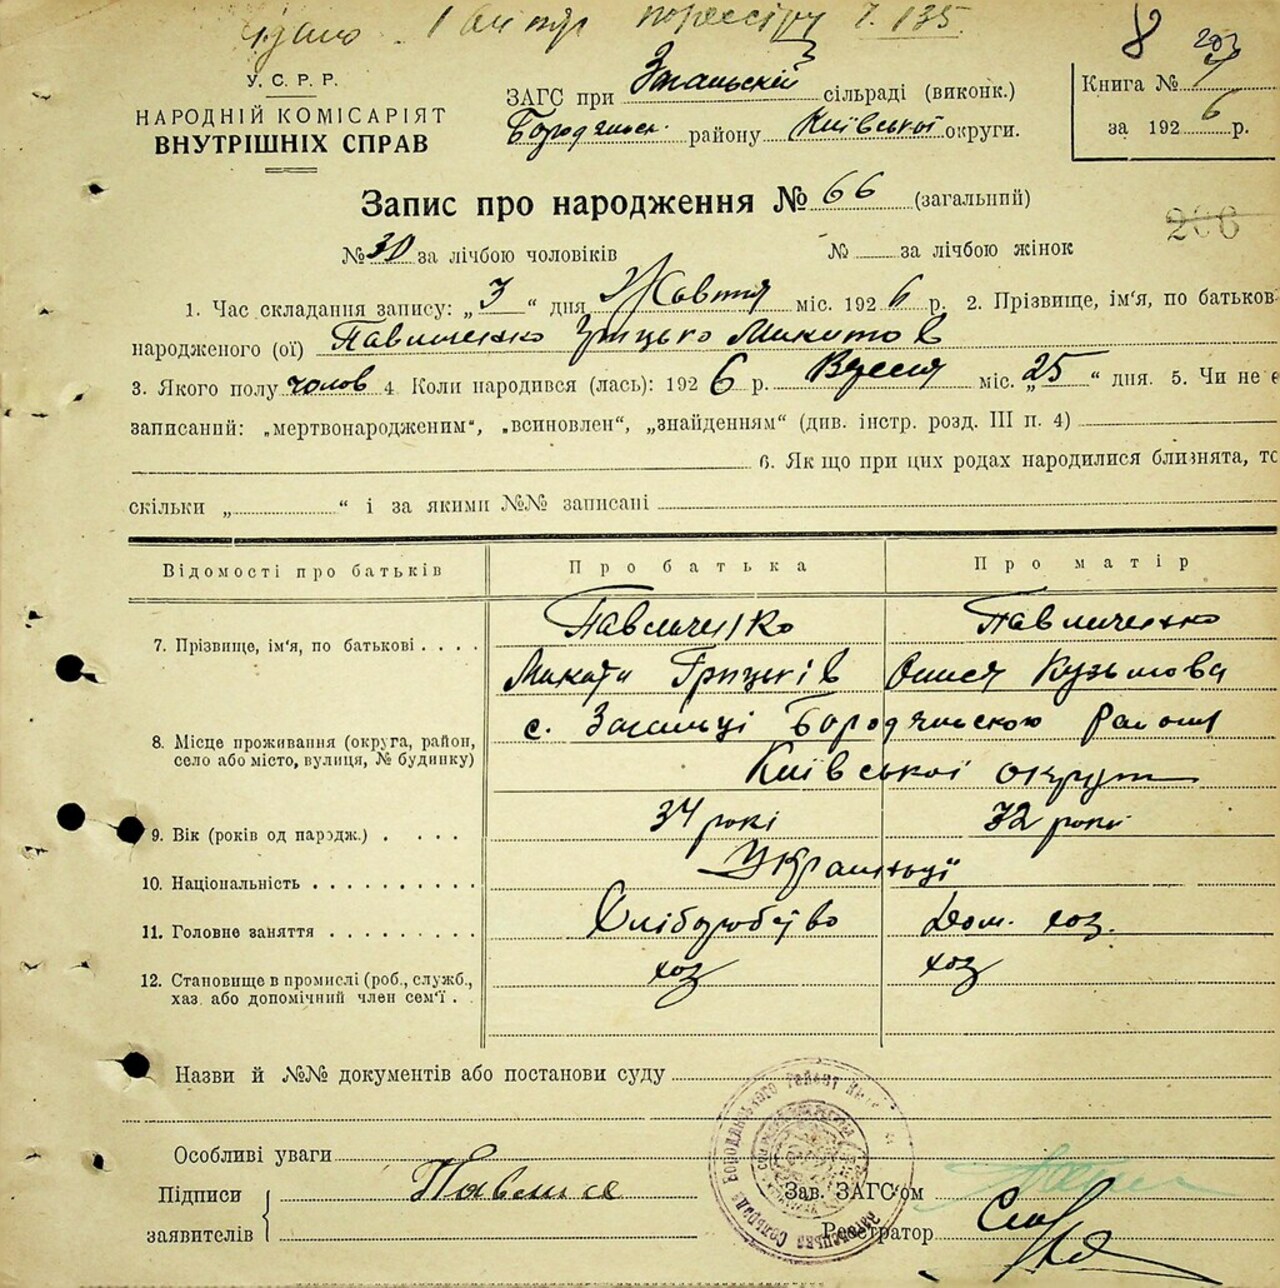 135
8
203
У. С. Р. Р.
НАРОДНІЙ КОМІСАРІЯТ
ВНУТРІШНІХ СПРАВ
ЗАГС при Загальскій сільраді (виконк.)
Бородянськ. району Київської округи.
Книга № 7
за 1926 р.
Запис про народження № 66 (загальний)
206
№ 30 за лічбою чоловіків № за лічбою жінок
1. Час складання запису: „3“ дня Жовтня міс. 1926 р. 2. Прізвище, ім‘я, по батьков
народженого (ої) Павличенко Грицько Микитов
3. Якого полу чолов 4 Коли народився (лась): 1926 р. Вресня міс. „25“ дня. 5. Чи не є
записаний: „мертвонародженим“, „всиновлен“, „знайденням“ (див. інстр. розд. III п. 4)
6. Як що при цих родах народилися близнята, то
скільки „ “ і за якими №№ записані
Відомості про батьків Про батька Про матір
7. Прізвище, ім‘я, по батькові Павличенко Павличенко
Микита Грицьків Олися Кузьмова
8. Місце проживання (округа, район,
село або місто, вулиця, № будинку)
с. Загальці Бородянського району
Київської округи
9. Вік (років од народж.) 34 рокі 32 роки
10. Національність Українці
11. Головне заняття Хліборобство Дом. хоз.
12. Становище в промислі (роб., служб.,
хаз. або допомічний член сем‘ї хоз хоз
Назви й №№ документів або постанови суду
Особливі уваги
Підписи
заявителів
Зав. ЗАГС‘ом
Реєстратор